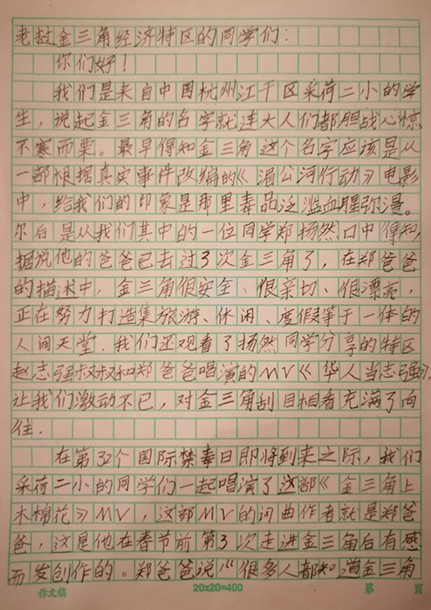 老挝金三角经济特区的同学们:
你们好!
我们是来自中国杭州江干区采荷二小的学
生,说起金三角的名字就连大人们都胆战心惊
不寒而栗。最早得知金三角这个名字应该是从
一部根据真实事件改编的《湄公河行动》电影
中,给我们的印象是那里毒品泛滥血腥弥漫。
尔后是从我们其中的一位同学郑扬然口中得知,
据说他的爸爸已去过3次金三角了,在郑爸爸
的描述中,金三角很安全、很亲切、很漂亮,
正在努力打造集旅游、休闲、度假等于一体的
人间天堂.我们还观看了扬然同学分享的特区
赵志强叔叔和郑爸爸唱演的MV《华人当志强》,
让我们激动不已,对金三角刮目相看充满了向
往.
在第32个国际禁毒日即将到来之际,我们
采荷二小的同学们一起唱演了这部《金三角上
木棉花》MV,这部MV的词曲作者就是郑爸
爸,这是他在春节前第3次走进金三角后有感
而发创作的。郑爸爸说"很多人都知道金三角
作文稿 20x20=400 第 页